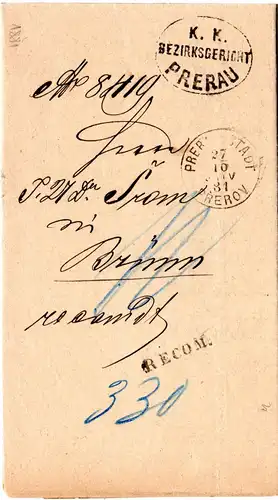 1881
K. K.
BEZIRKSGERICHT
PRERAU
№ 8419
PRERAU STADT
27
10
IV
81
PREROV
Herrn
J. U. Dr Šrom
in
Brünn
recomdt
RECOM.
330